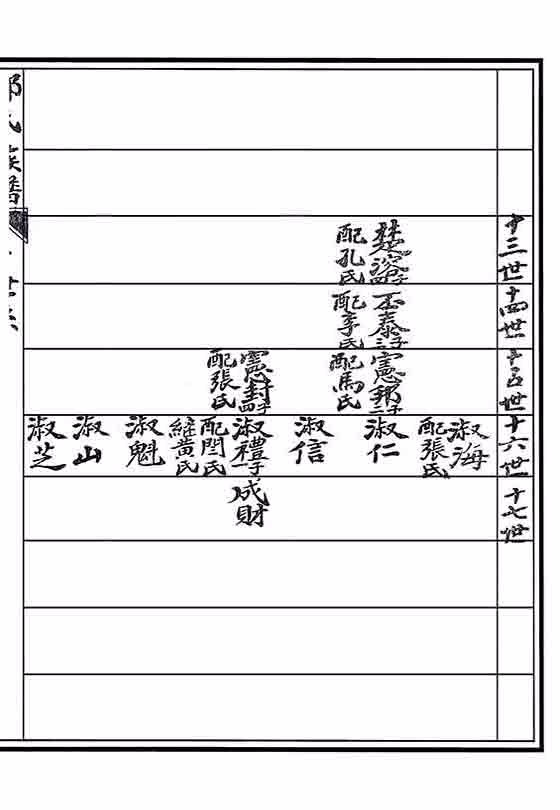 十三世
十四世
十五世
十六世
十七世
楚
配孔氏
丕泰
配李氏
憲邦
配馬氏
憲封四子
配張氏
淑海
配張氏
淑仁
淑信
淑禮一子
配閆氏
繼黄氏
淑魁
淑山
淑芝
成財
氏族譜